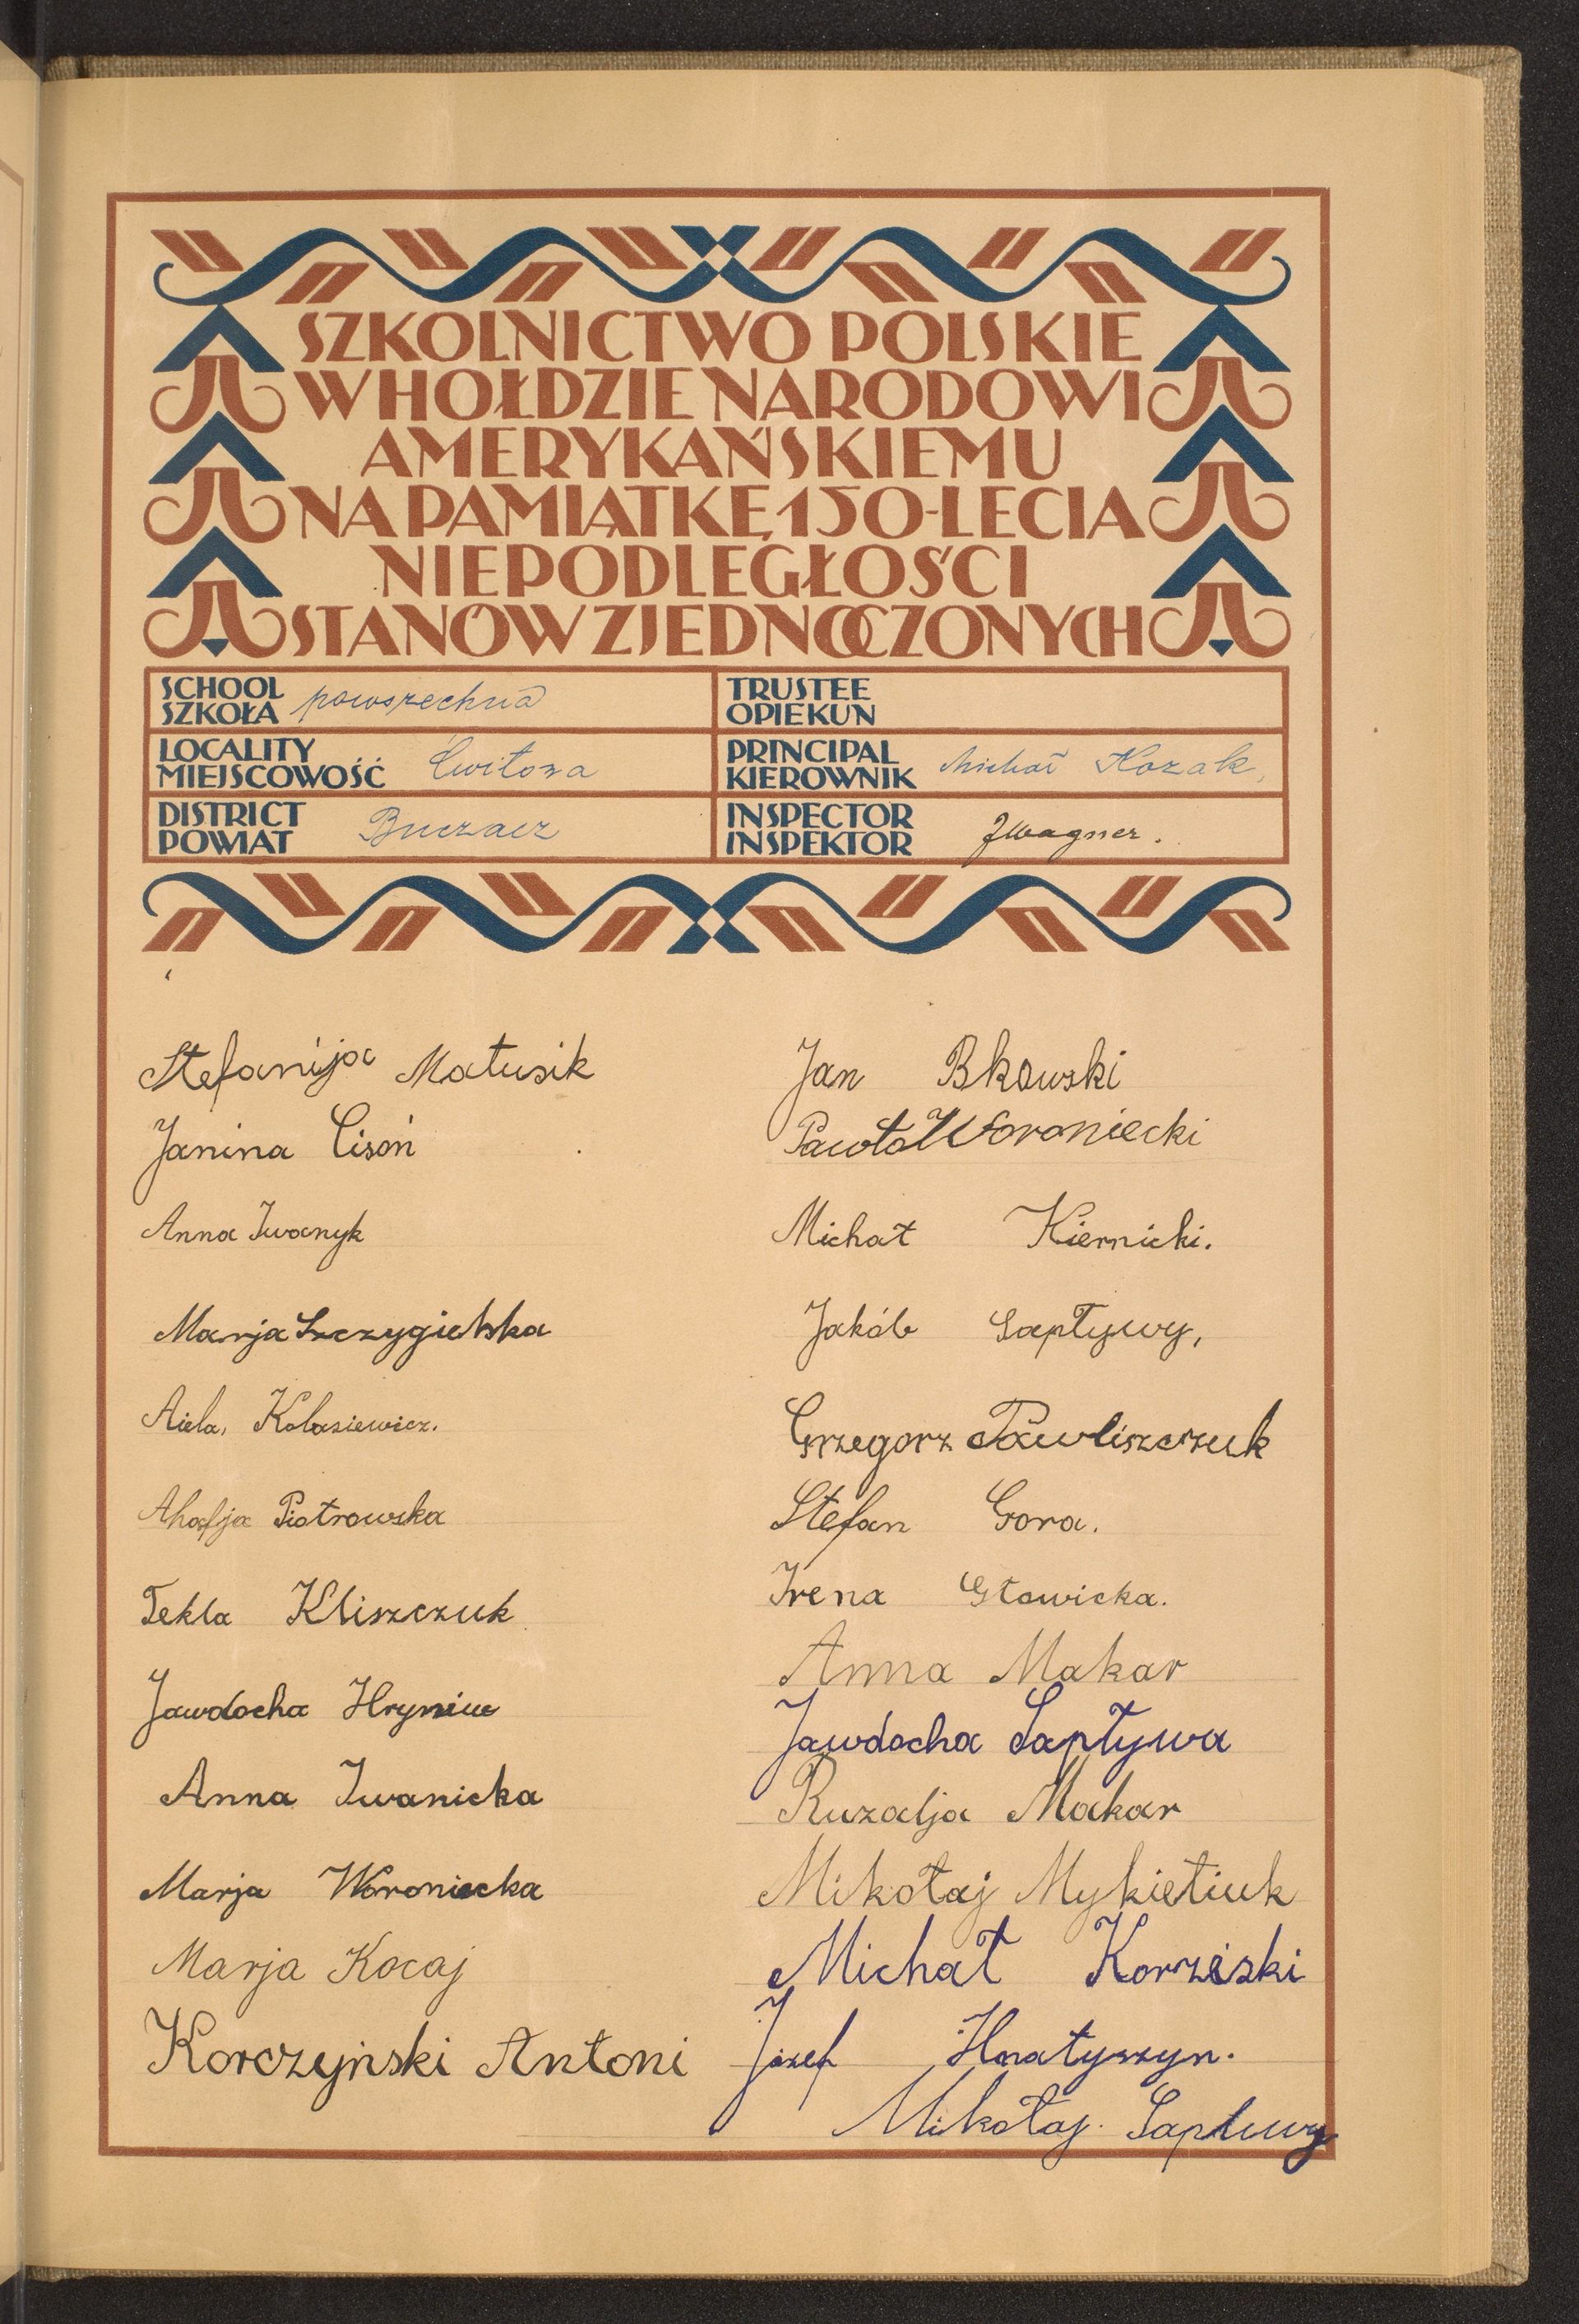 SZKOLNICTWO POLSKIE
W HOŁDZIE NARODOWI
AMERYKAŃSKIEMU
NA PAMIĄTKĘ 150-LECIA
NIEPODLEGŁOŚCI
STANÓW ZJEDNOCZONYCH
SCHOOL
SZKOŁA powszechna
TRUSTEE
OPIEKUN
LOCALITY
MIEJSCOWOŚĆ Ćwitowa
PRINCIPAL
KIEROWNIK Michał Kozak,
DISTRICT
POWIAT Buczacz
INSPECTOR
INSPEKTOR JWagner.
Stefanija Matusik
Janina Cisoń
Anna Iwanyk
Marja Szczygielska
Aiela, Kolasiewicz.
Ahafja Piotrowska
Tekla Kliszczuk
Jawdocha Hryniw
Anna Iwanicka
Marja Woroniecka
Marja Kocaj
Korczyński Antoni
Jan Bkowski
Pawło Woroniecki
Michał Kiernicki.
Jakób Sapływy,
Grzegorz Pawliszczuk
Stefan Gora.
Irena Głowicka.
Anna Makar
Jawdocha Sapływa
Ruzalja Makar
Mikołaj Mykietiuk
Michał Korziski
Józef Hnatyszyn.
Mikołaj Sapluwy